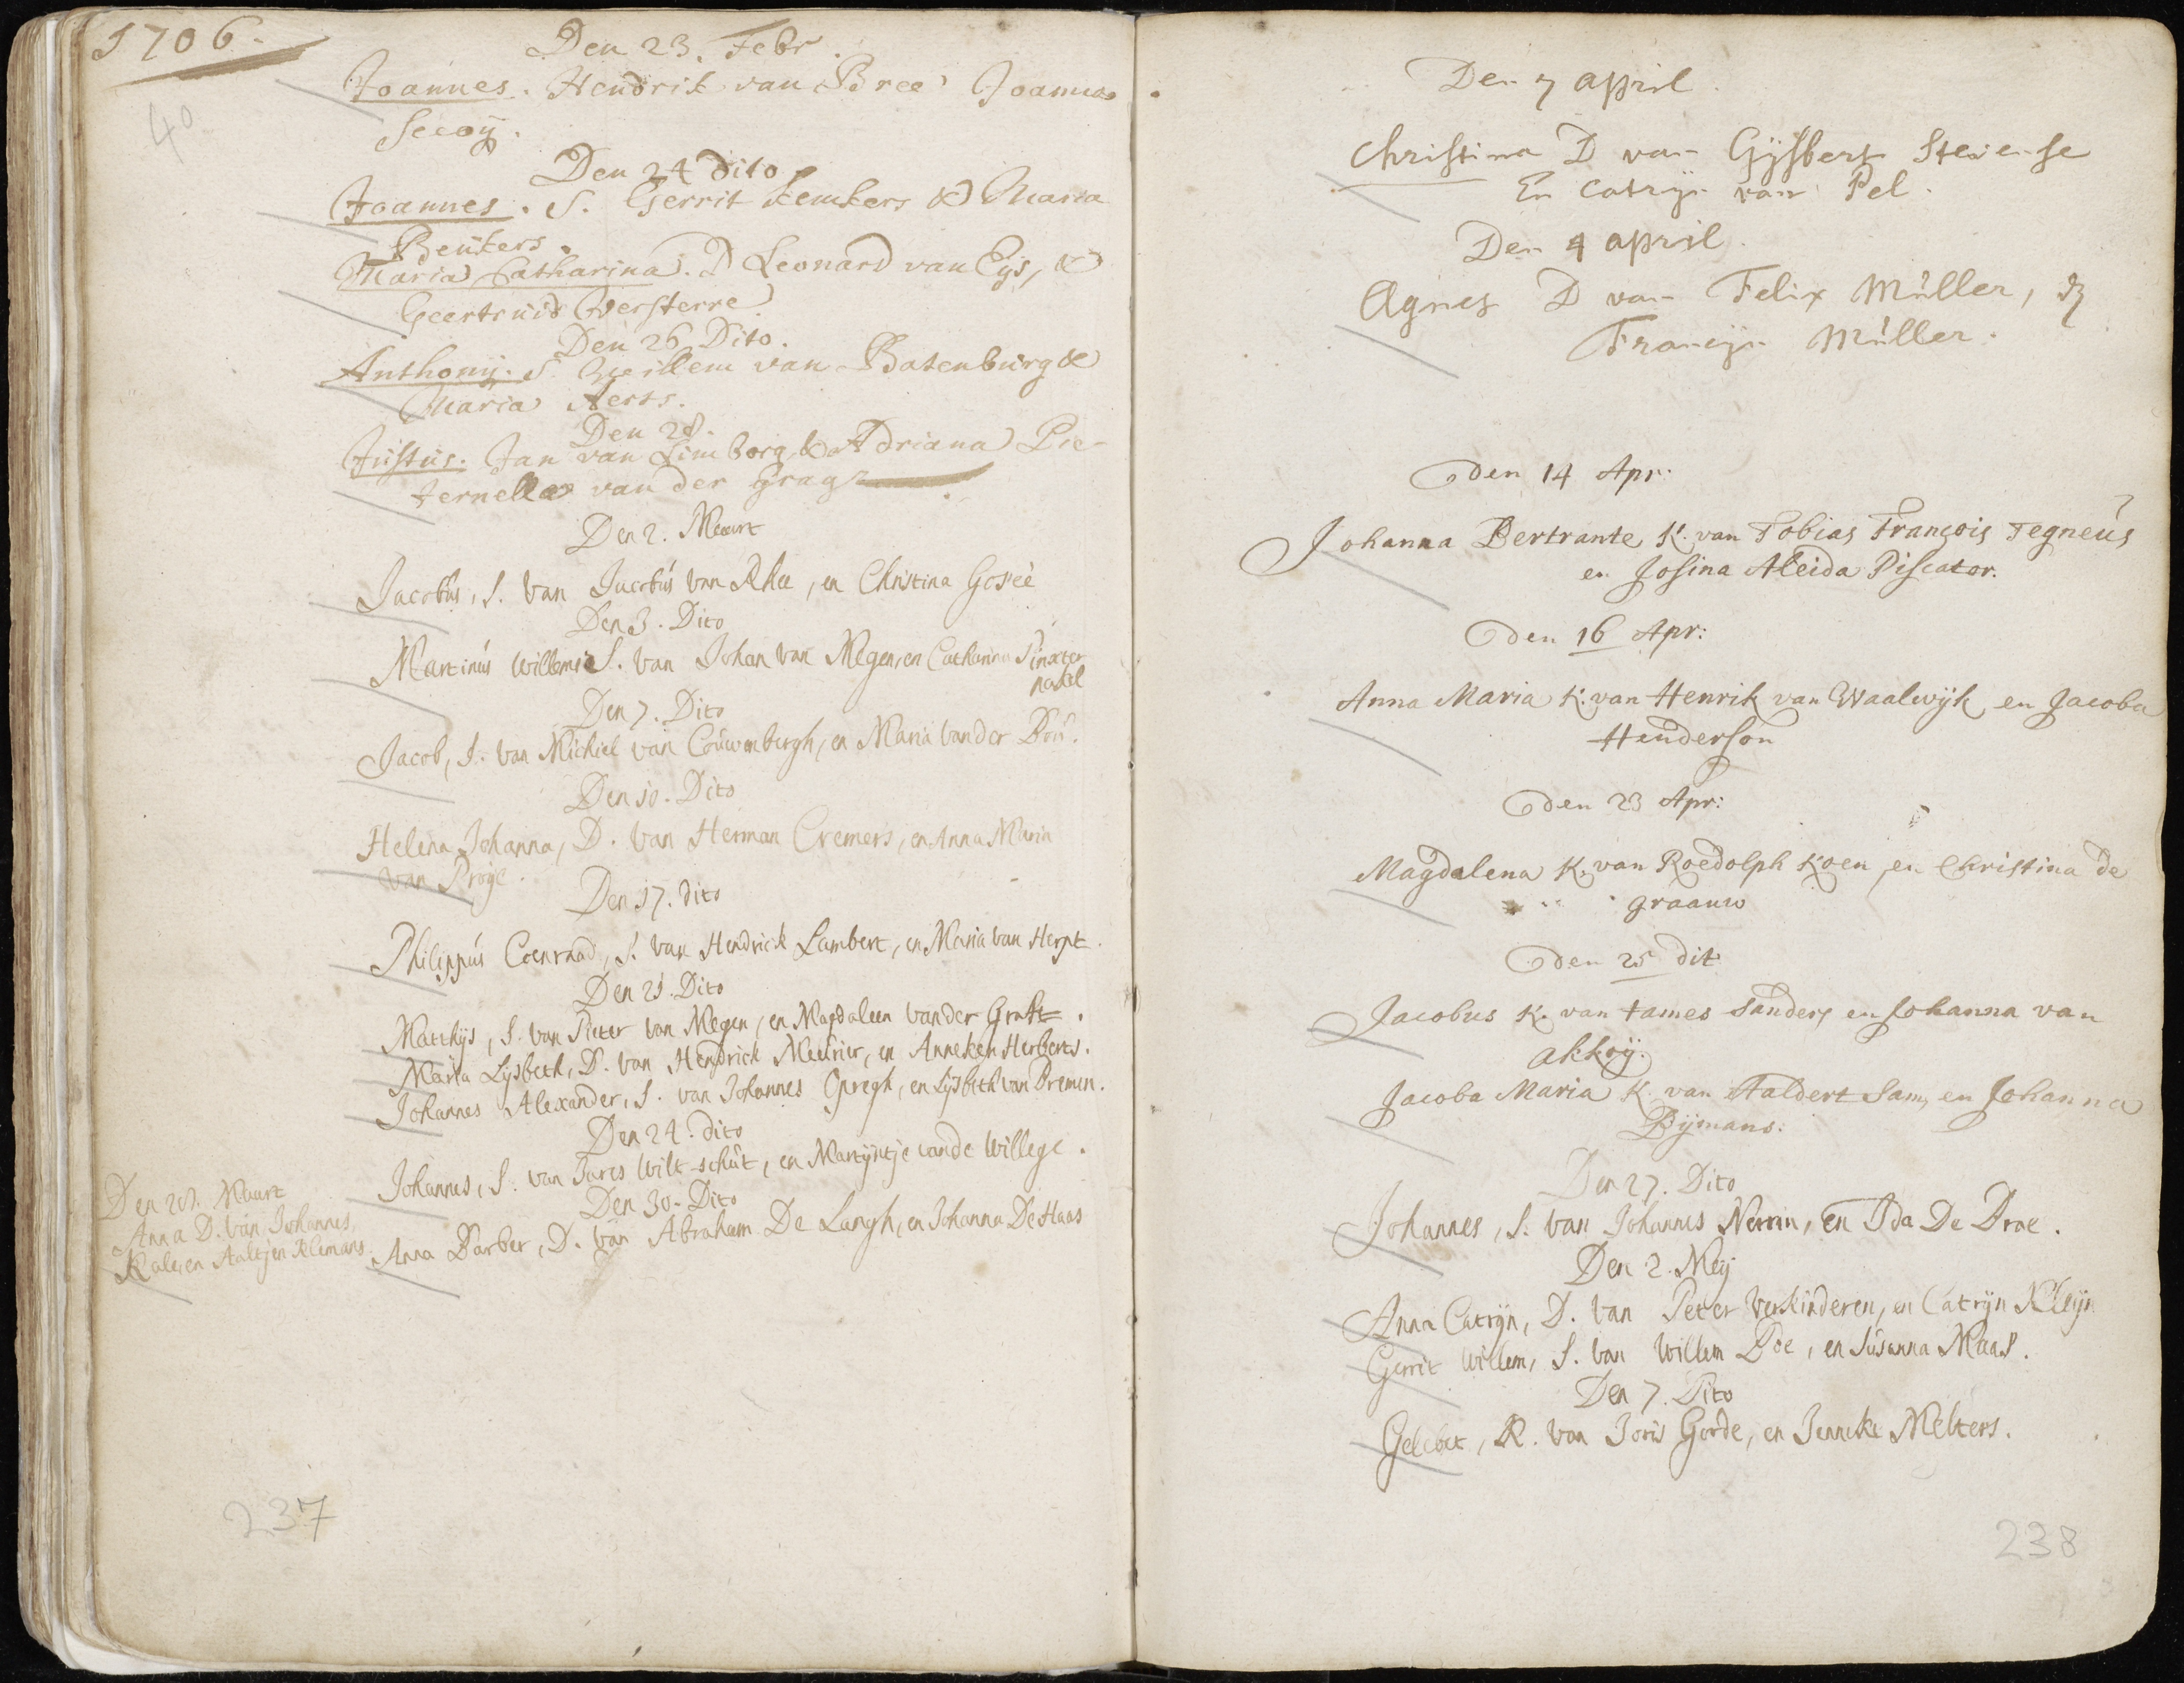 1706.
40
Den 23. Febr.
Joannes. Hendrik van Bree Joanna
Secoÿ.
Den 24 dito
Joannes. S. Gerrit Kemkers & Maria
Beukers.
Maria Catharina. D Leonard van Eijs, &
Geertruid Versterre
Den 26 Dito.
Anthonij. S. Willem van Batenburg &
Maria Aerts.
Den 28.
Justus. Jan van Limborg & Adriana Pie-
ternella van der Gragt
Den 2. Maart
Jacobus, S. van Jacobus van Rhee, en Christina Goseé
Den 3. Dito
Martinus Willem S. van Johan van Megen, en Catharina Pinxter
nakel
Den 7. Dito
Jacob, S. van Michiel van Couwenbergh, en Maria vander Bou.
Den 10. Dito
Helena Johanna, D. van Herman Cremers, en Anna Maria
van Proÿe.
Den 17. dito
Philippus Coenraad, S. van Hendrick Lambert, en Maria van Herpt.
Den 21. Dito
Matthijs, S. van Pieter van Megen, en Magdaleen vander Graft.
Maria Lijsbeth, D. van Hendrick Meurier, en Anneken Herberts.
Johannes Alexander, S. van Johannes Opregh, en Lijsbeth van Bremen.
Den 24. dito
Johannes, S. van Jares Wilt-schut, en Martijntje vande Willege.
Den 30. Dito
Anna Barber, D. van Abraham De Langh, en Johanna De Haas
Den 28. Maart
Anna D. van Johannes
Kale, en Aaltjen Klemans.
237
Den 7 april
Christina D van Gijsbert Stevense
En Catrijn van Pel.
Den 4 april.
Agnes D van Felix Müller, &
Francijn Müller.
den 14 Apr:
Johanna Bertrante K. van Tobias François Tegneus
en Josina Aleida Piscator.
den 16 Apr:
Anna Maria K. van Henrik van Waalwijk en Jacoba
Henderson
den 23 Apr:
Magdalena K. van Roedolph Koen, en Christina de
graauw
den 25 dit
Jacobus K. van tames Sanders en Johanna van
akkoÿ.
Jacoba Maria K. van Aaldert Sam, en Johanna
Bijmans:
Den 27. Dito
Johannes, S. van Johannes Nerrin, en Ida De Brae.
Den 2. Meij
Anna Catrijn, D. van Peter Verkinderen, en Catrijn Kleijn
Gerrit Willem, S. van Willem Doe, en Susanna Maas.
Den 7. Dito
Gelebet, K. van Joris Gorde, en Jenneke Melters.
238